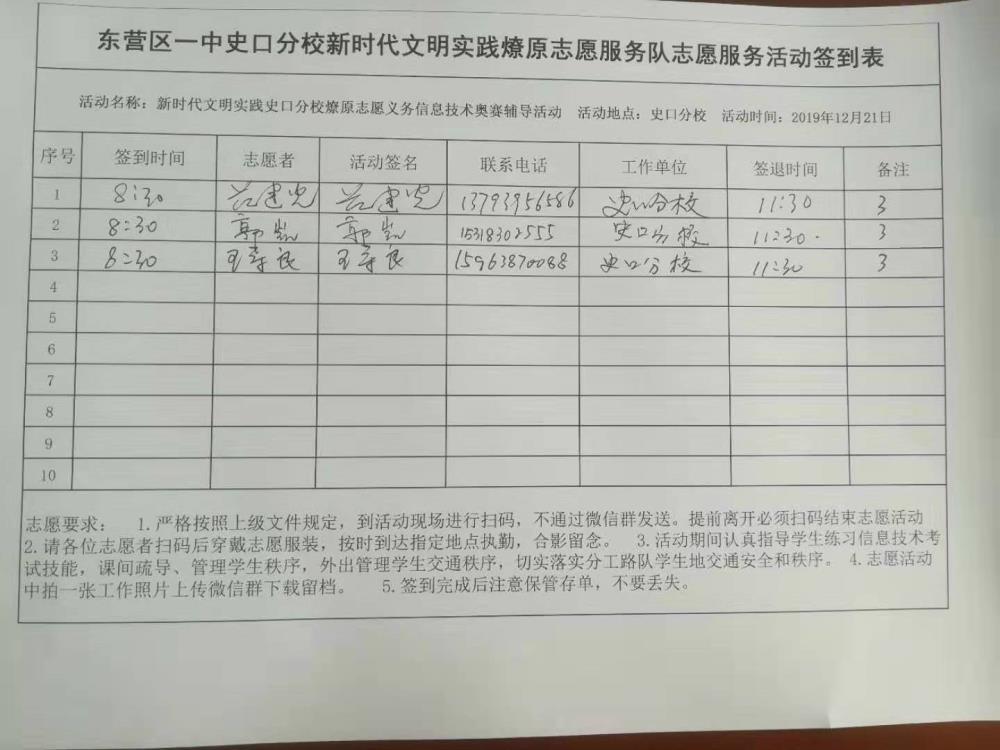 东营区一中史口分校新时代文明实践燎原志愿服务队志愿服务活动签到表
活动名称：新时代文明实践史口分校燎原志愿义务信息技术奥赛辅导活动 活动地点：史口分校 活动时间：2019年12月21日
序号 签到时间 志愿者 活动签名 联系电话 工作单位 签退时间 备注
1 8:30 建光 建光 13793956586 史口分校 11:30 3
2 8:30 郭凯 郭凯 15318302555 史口分校 11:30. 3
3 8:30 王春良 王春良 15963870088 史口分校 11:30 3
4
5
6
7
8
9
10
志愿要求： 1.严格按照上级文件规定，到活动现场进行扫码，不通过微信群发送。提前离开必须扫码结束志愿活动
2.请各位志愿者扫码后穿戴志愿服装，按时到达指定地点执勤，合影留念。 3.活动期间认真指导学生练习信息技术考
试技能，课间疏导、管理学生秩序，外出管理学生交通秩序，切实落实分工路队学生地交通安全和秩序。 4.志愿活动
中拍一张工作照片上传微信群下载留档。 5.签到完成后注意保管存单，不要丢失。